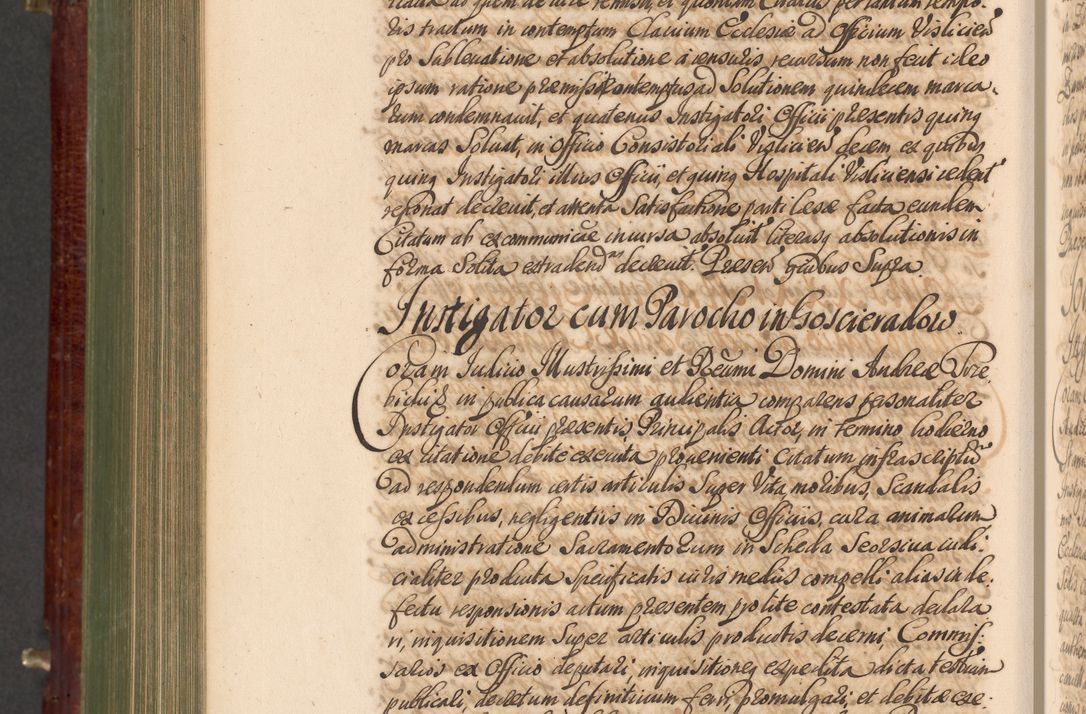 tis tractum in contemptum Clavium Ecclesiæ ad Officium Vislicien
pro Sublevatione et absolutione a censuris recursum non fecit ideo
ipsum ratione præmissi contemptus ad Solutionem quindecem marca-
rum condemnavit, et quatenus Instigatori Officii præsentis quinq
marcas Solvat, in Officio Consistoriali Vislicien decem ex quibus
quinq Instigatori illius Officii, et quinq Hospitali Visliciensi cedent
reponat decrevit, et attenta Satisfactione parti lesæ facta eundem
Citatum ab excommunicæ incursa absolvit literasq absolutionis in
forma Solita extradend decrevit. Presen quibus Supra.
Instigator cum Parocho in Goscieradow.
Coram Iudicio Illustrissimi et Rēumi Domini Andreæ Tre
bickis in publica causarum audientia comparens personaliter
Instigator Officii præsentis, Principalis Actor, in termino hodierno
ex citatione debite executa provenienti Citatum infrascriptu
ad respondendum certis articulis Super Vita, moribus, Scandalis
excessibus, negligentiis in Divinis Officiis, cura animarum
administratione Sacramentorum in Scheda Seorsiva iudi-
cialiter producta Specificatis iuris mediis compelli alias in de-
fectu responsionis actum præsentem pro lite contestata declara
ri, inquisitionem Super articulis productis decerni, Commis-
sarios ex Officio deputari, inquisitioneq expedita dicta testium
publicari, decretum definitivum ferri, promulgari, et debitæ exe-